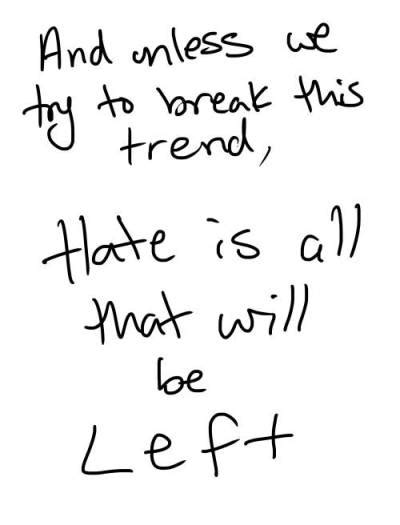 And unless we
try to break this
trend,
Hate is all
that will
be
Left